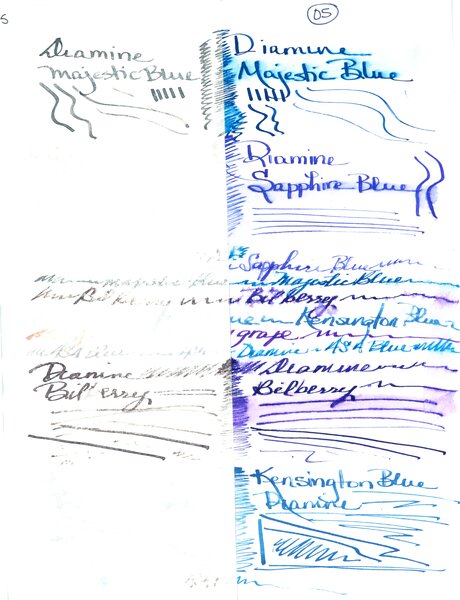 S
05
Diamine
Majestic Blue
Diamine
Majestic Blue
Diamine
Sapphire Blue
Sapphire Blue
majestic blue Majestic Blue
Bilberry Bilberry
Kensington Blue
grape
Diamine ASA Blue
Diamine
Bilberry
Diamine
Bilberry
Kensington Blue
Diamine